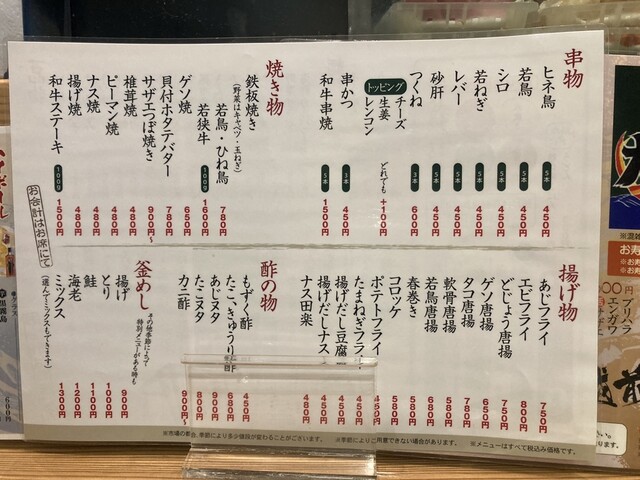 串物
ヒネ鳥 5本 450円
若鳥 5本 450円
シロ 5本 450円
若ねぎ 5本 450円
レバー 5本 450円
砂肝 5本 450円
つくね 3本 600円
トッピング
チーズ
生姜
レンコン
どれでも +100円
串かつ 5本 450円
和牛串焼 5本 1500円
焼き物
鉄板焼き
(野菜はキャベツ・玉ねぎ)
若鳥・ひね鳥 780円
若狭牛 100g 1600円
ゲソ焼 680円
貝付ホタテバター 780円
サザエつぼ焼き 900円〜
椎茸焼 480円
ピーマン焼 480円
ナス焼 480円
揚げ焼 480円
和牛ステーキ 100g 1500円
お会計はお席にて
揚げ物
あじフライ 750円
エビフライ 800円
どじょう唐揚 750円
ゲソ唐揚 680円
タコ唐揚 780円
軟骨唐揚 580円
若鳥唐揚 680円
春巻き 580円
コロッケ 580円
ポテトフライ 450円
たまねぎフライ 450円
揚げだし豆腐 450円
揚げだしナス 450円
ナス田楽 480円
酢の物
もずく酢 450円
たこ、きゅうり 680円
あじヌタ 800円
たこヌタ 800円
カニ酢 900円〜
釜めし
その他季節によって
特別メニューがある時も
揚げ 900円
とり 1000円
鮭 1100円
海老 1200円
ミックス 1300円
(選んでミックスもできます)
※市場の都合、季節により多少値段が変わることがございます。 ※季節によりご用意できない場合があります。 ※メニューはすべて税込み価格です。
ブリハラ
エンガワ
越前
600円